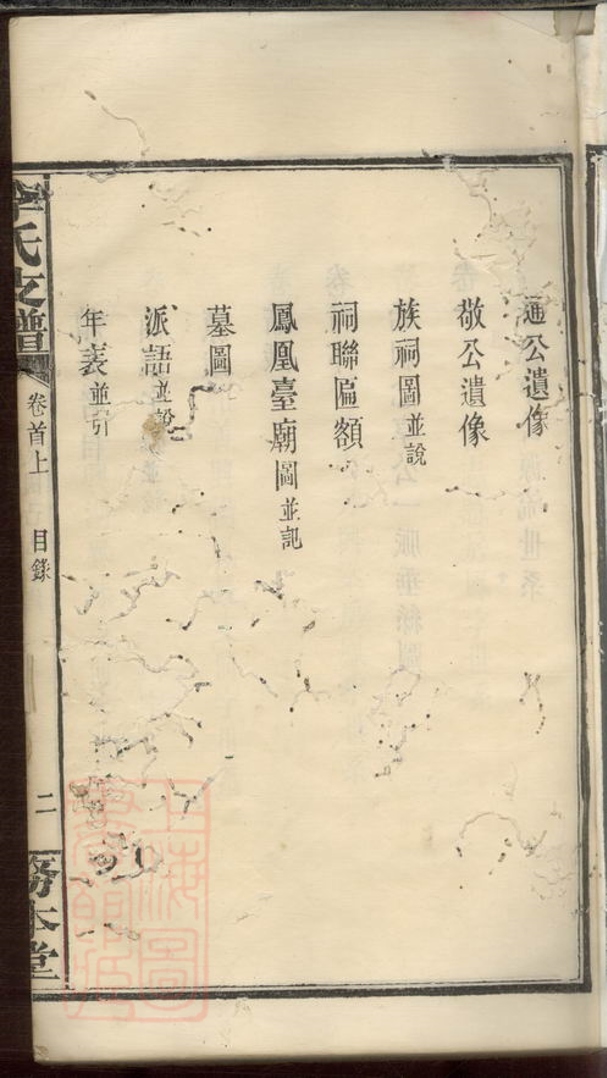 通公遺像
敬公遺像
族祠圖並說
祠聯匾額
鳳凰臺廟圖並記
墓圖
派語並說
年表並引
氏支譜
卷首上
目錄
二
務本堂
上海圖